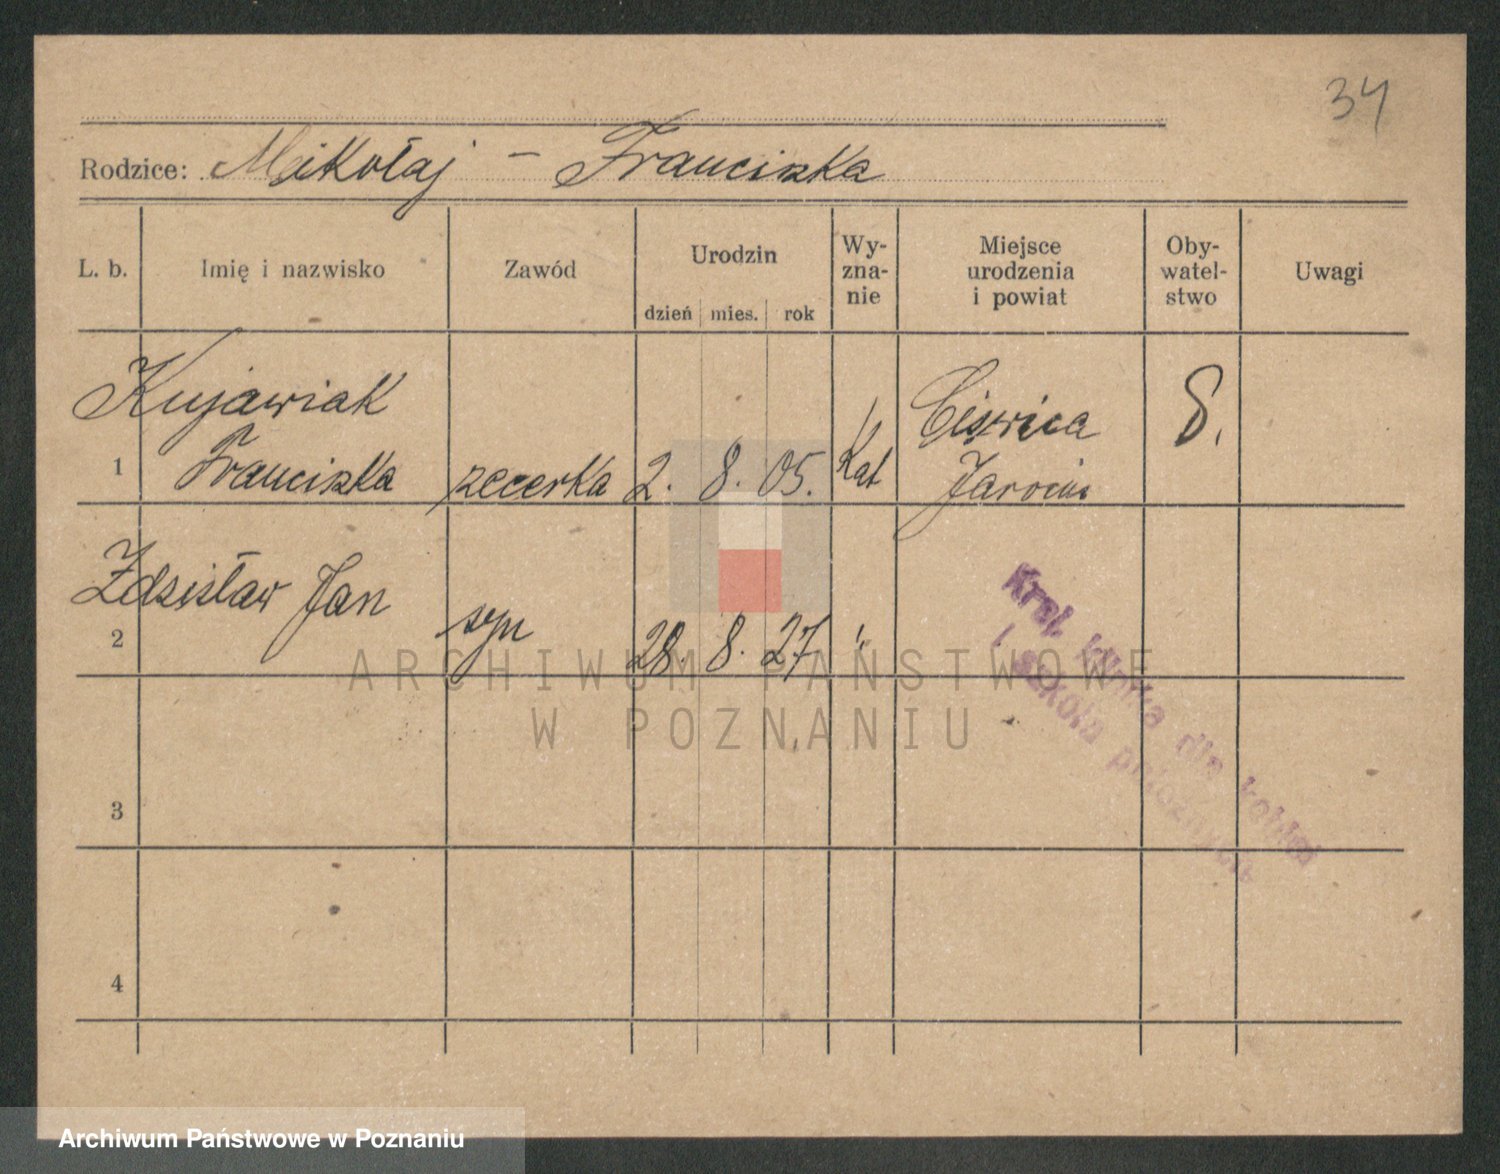 34
Rodzice: Mikołaj - Franciszka
L. b. Imię i nazwisko Zawód Urodzin dzień mies. rok Wy-zna-nie Miejsce urodzenia i powiat Oby-watel-stwo Uwagi
Kujawiak
1 Franciszka zecerka 2. 8. 05. Kat Ciświca
Jarocin
Zdzisław Jan
2 syn 28. 8. 27
Kraj. klinika dla kobiet
i szkoła położnych
3
4
ARCHIWUM PAŃSTWOWE
W POZNANIU
Archiwum Państwowe w Poznaniu